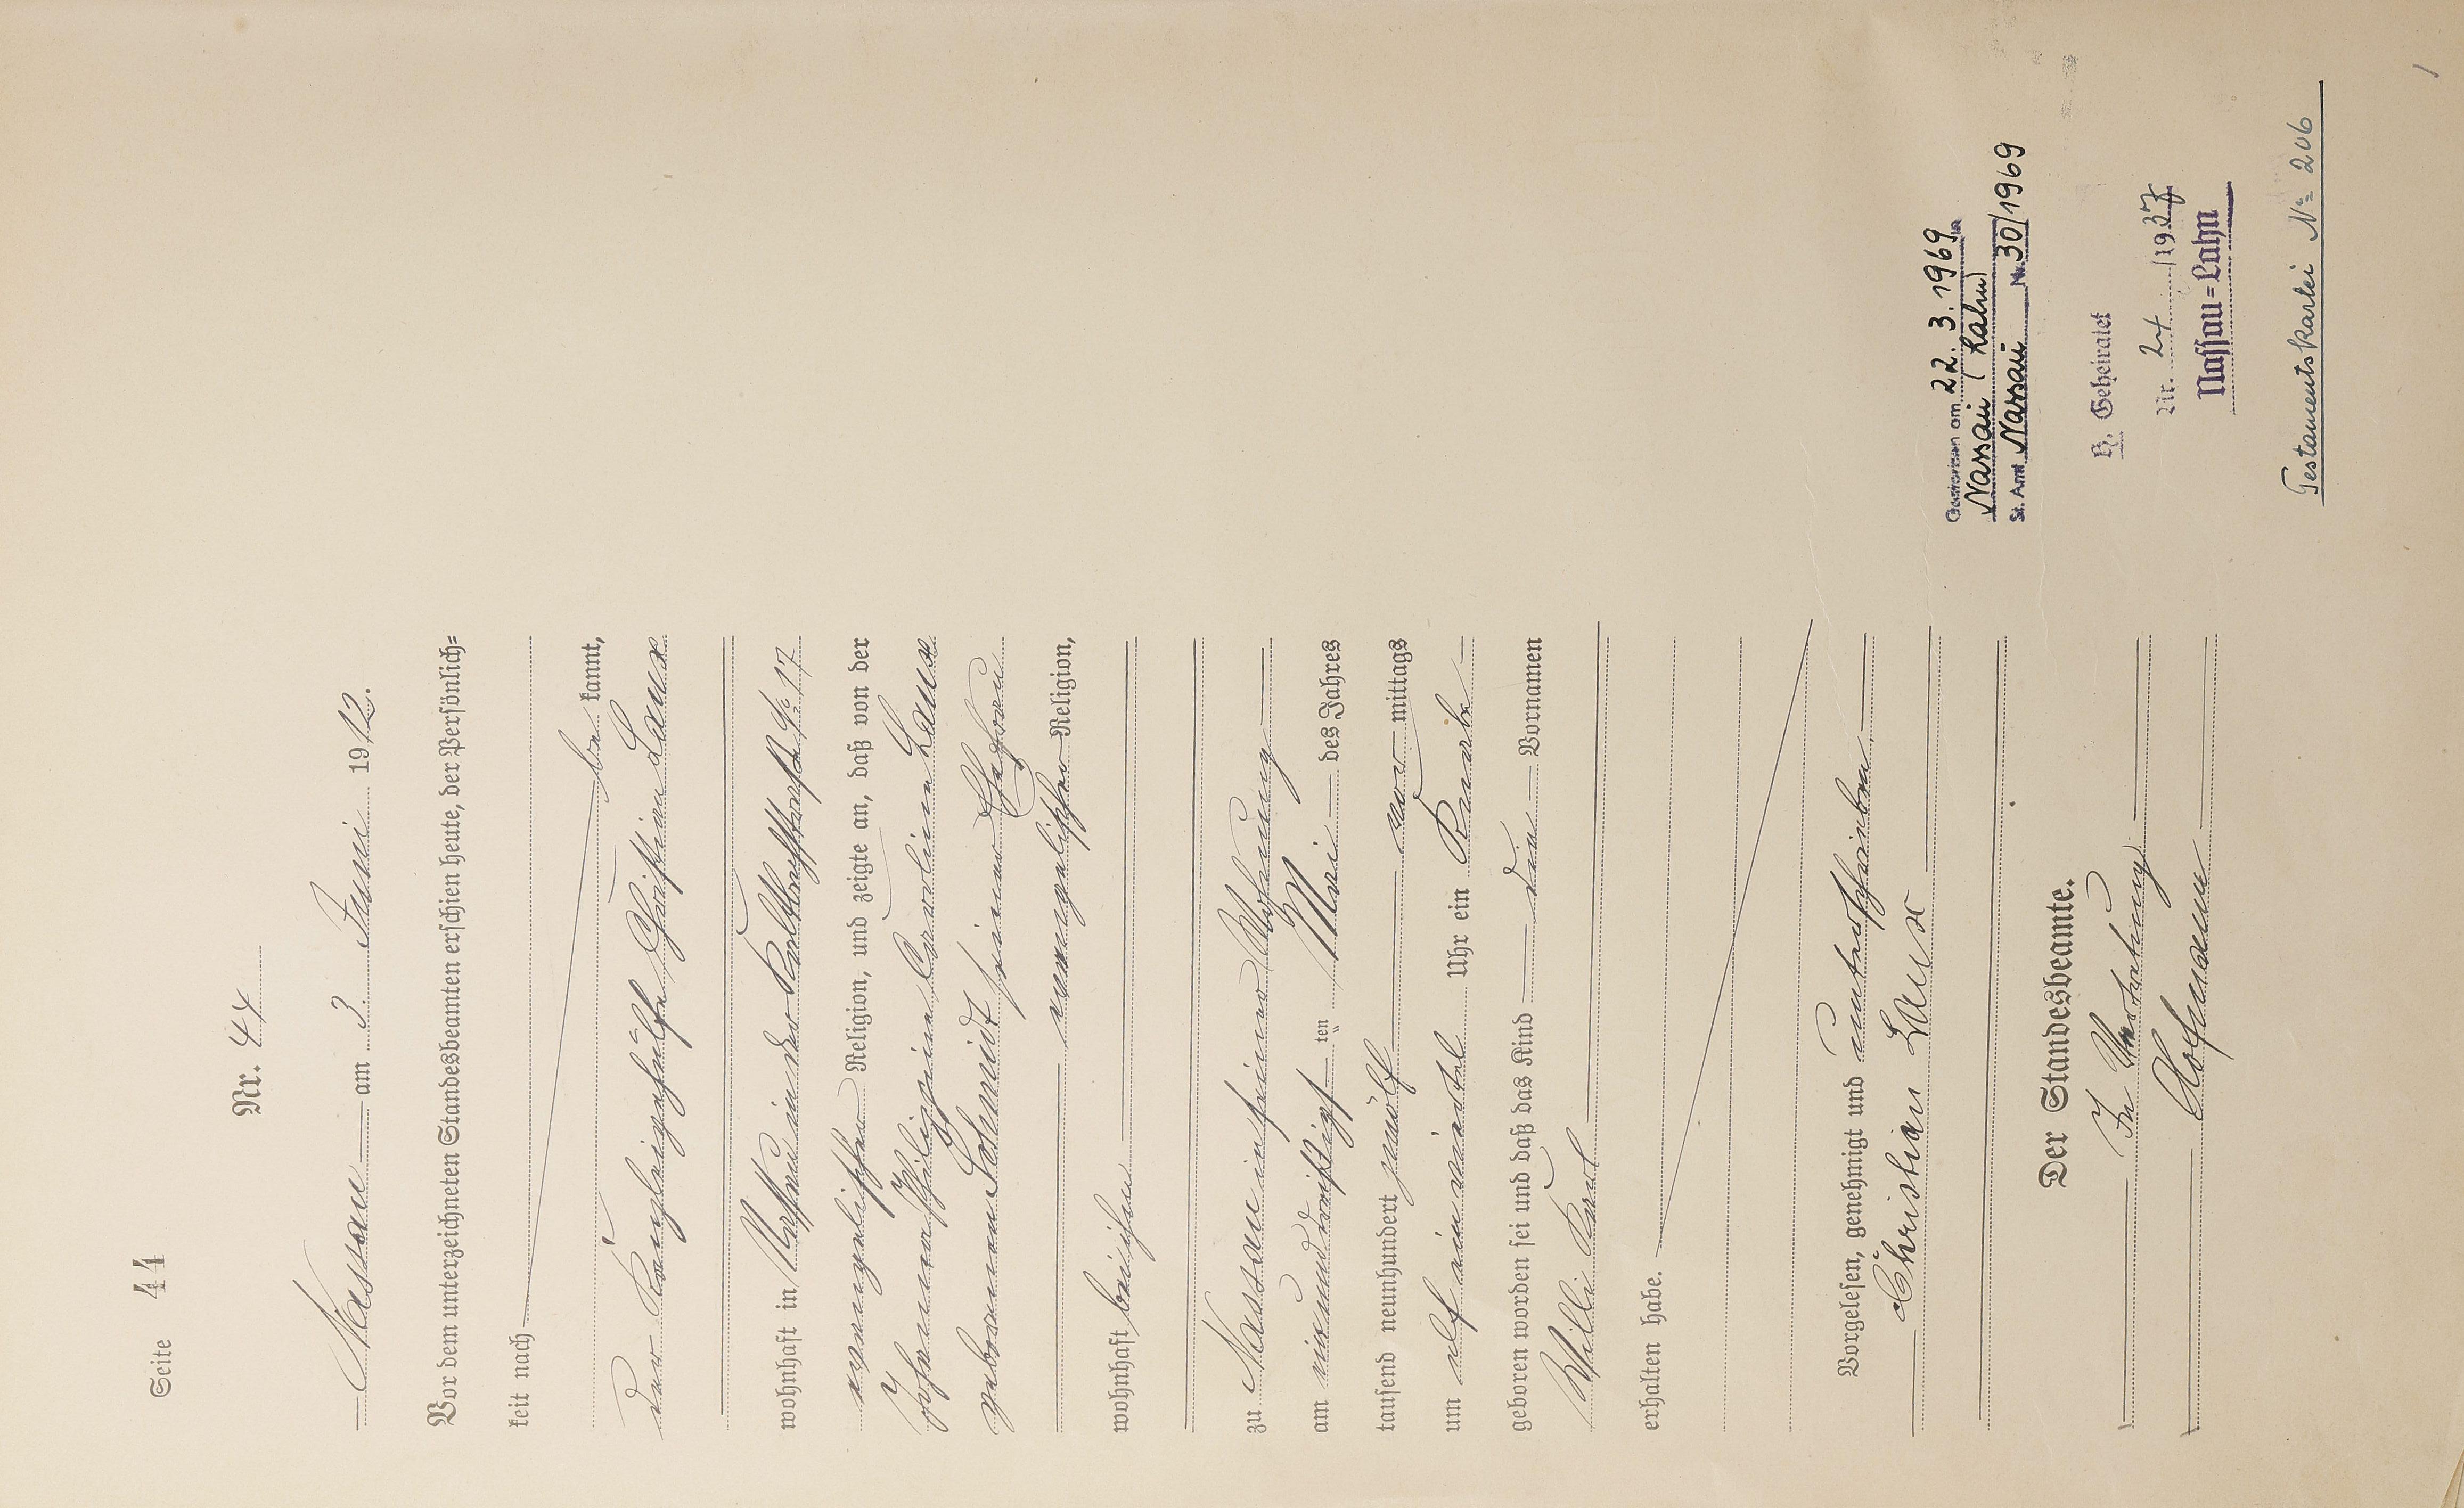 Seite 44
Nr. 44
Nassau am 3. Juni 1912.
Vor dem unterzeichneten Standesbeamten erschien heute, der Persönlich=
keit nach
be kannt,
der Kanzleigehülfe Christian Laux
wohnhaft in Nassau in der Kaltbachstraße No 17
evangelischer Religion, und zeigte an, daß von der
Johanna Philippine Caroline Laux
geborenen Schmidt seiner Ehefrau
evangelischer Religion,
wohnhaft bei ihm
zu Nassau in seiner Wohnung
am einunddreißigsten ten Mai des Jahres
tausend neunhundert zwölf vor mittags
um elf ein viertel Uhr ein Knabe
geboren worden sei und daß das Kind die Vornamen
Willi Karl
erhalten habe.
Vorgelesen, genehmigt und unterschrieben
Christian Laux
Der Standesbeamte.
In Vertretung
Hofmann
Gestorben am 22. 3. 1969 in
Nassau (Lahn)
St. Amt Nassau Nr. 30/1969
B. Geheiratet
Nr. 24 /1937
Nassau=Lahn
Testamentskartei No 206